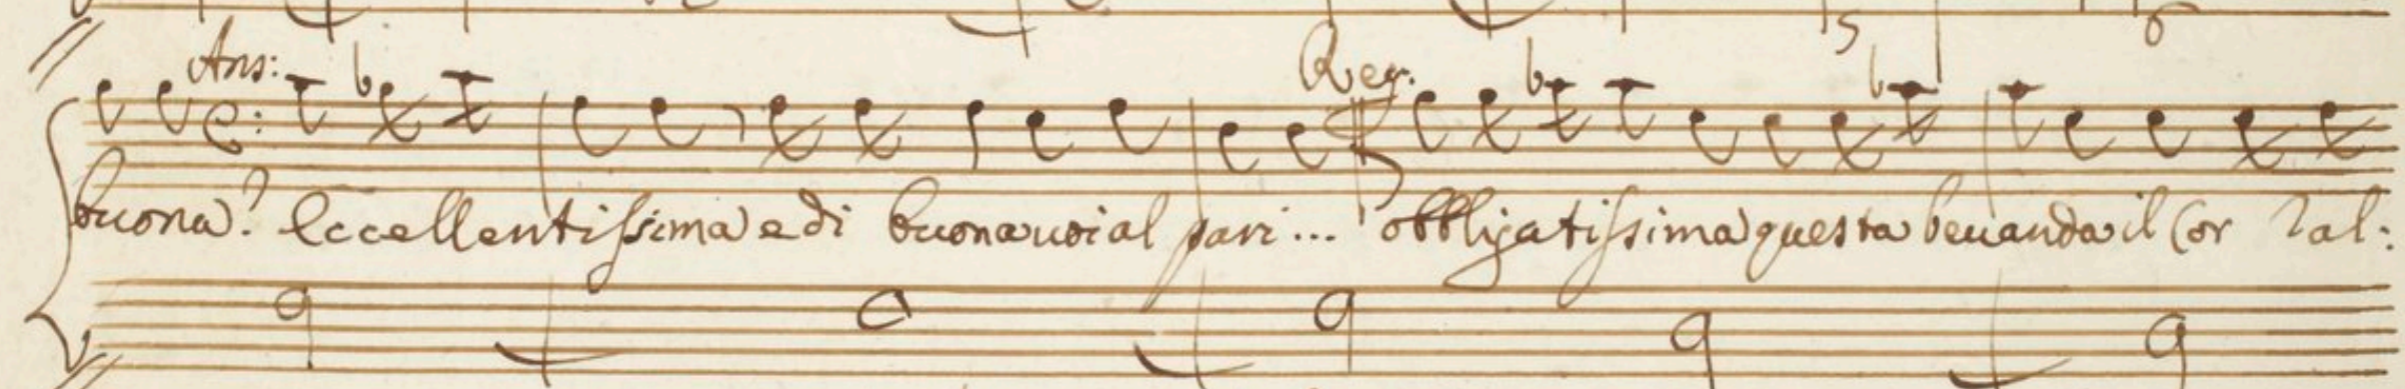 5 6
Ans: Reg:
buona? Eccellentissima e di buona uoi al pari... obbligatissima questa beuanda il Cor